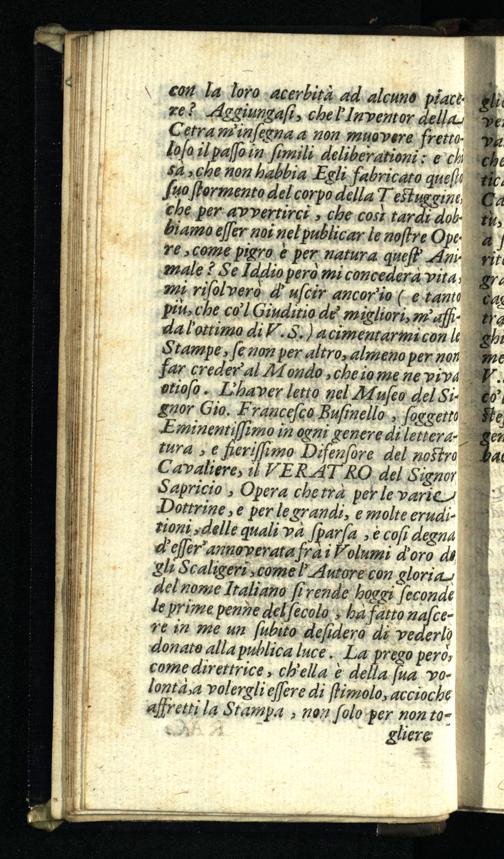 con la loro acerbità ad alcuno piace-
re? Aggiungasi, che l'Inventor della
Cetra m'insegna a non muovere fretto-
loso il passo in simili deliberationi: e chi
sà, che non habbia Egli fabricato questo
suo stormento del corpo della Testuggine,
che per avvertirci, che così tardi dob-
biamo esser noi nel publicar le nostre Ope-
re, come pigro è per natura quest' Ani-
male? Se Iddio però mi concederà vita,
mi risolverò d' uscir ancor'io (e tanto
più, che co'l Giuditio de' migliori, m'affi-
da l'ottimo di V.S.) a cimentarmi con le
Stampe, se non per altro, almeno per non
far creder' al Mondo, che io me ne viva
otioso. L'haver letto nel Museo del Si-
gnor Gio. Francesco Businello, soggetto
Eminentissimo in ogni genere di lettera-
tura, e fierissimo Difensore del nostro
Cavaliere, il VERATRO del Signor
Sapricio, Opera che trà per le varie
Dottrine, e per le grandi, e molte erudi-
tioni, delle quali và sparsa, è così degna
d'esser' annoverata frà i Volumi d'oro de
gli Scaligeri, come l' Autore con gloria
del nome Italiano si rende hoggi seconde
le prime penne del secolo, ha fatto nasce-
re in me un subito desidero di vederlo
donato alla publica luce. La prego però,
come direttrice, ch'ella è della sua vo-
lontà, a volergli essere di stimolo, accioche
affretti la Stampa, non solo per non to-
gliere